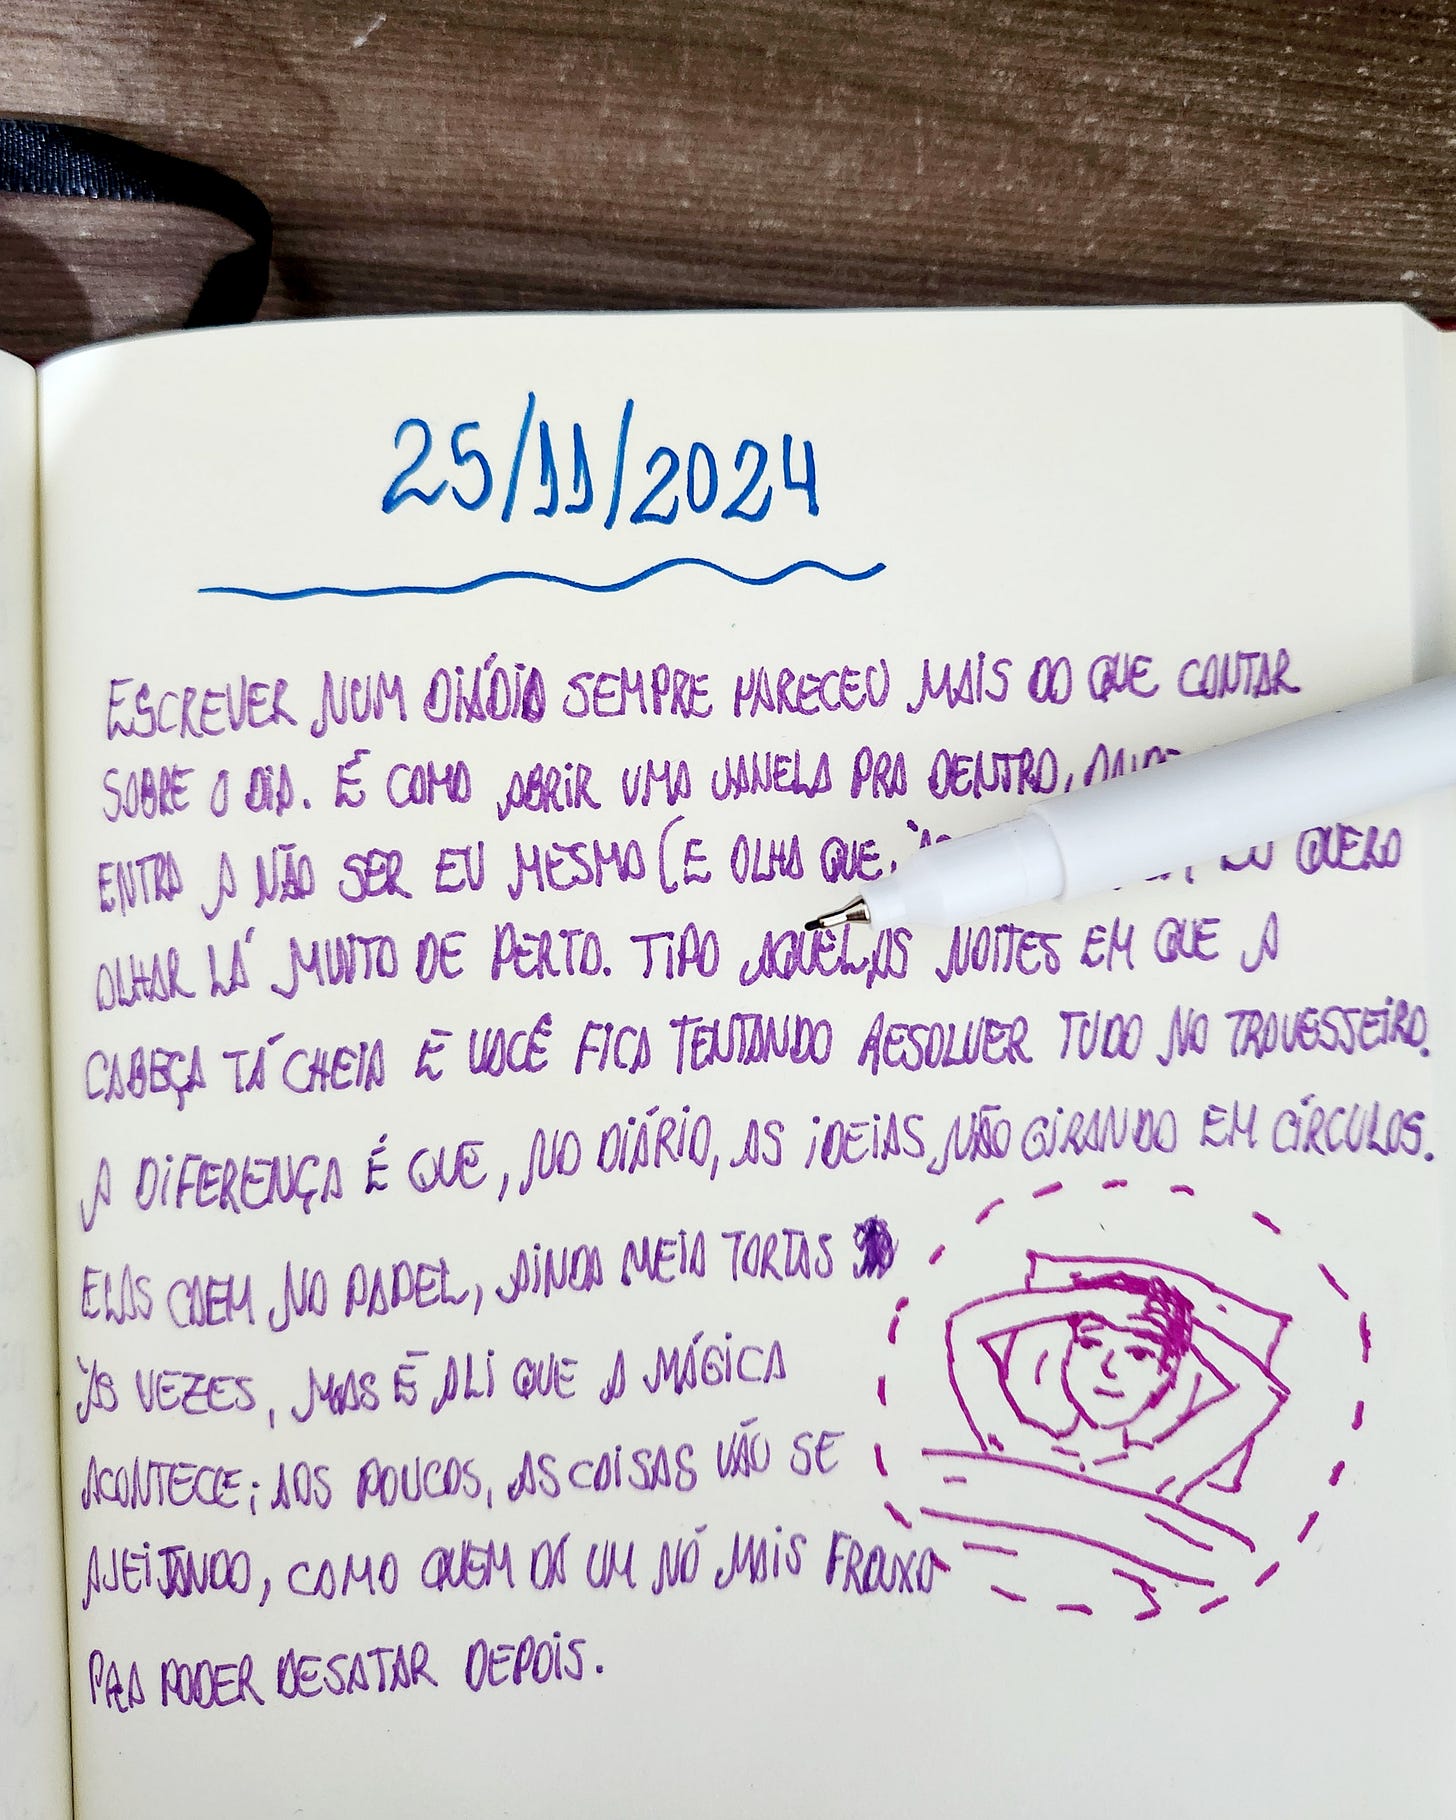 25/11/2024
ESCREVER NUM DIÁDIO SEMPRE PARECEU MAIS DO QUE CONTAR
SOBRE O DIA. É COMO ABRIR UMA JANELA PRA DENTRO,
ENTRA A NÃO SER EU MESMO (E OLHA QUE, QUERO
OLHAR LÁ MUITO DE PERTO. TIPO AQUELAS NOITES EM QUE A
CABEÇA TÁ CHEIA E VOCÊ FICA TENTANDO RESOLVER TUDO NO TRAVESSEIRO.
A DIFERENÇA É QUE, NO DIÁRIO, AS IDEIAS NÃO GIRANDO EM CÍRCULOS.
ELAS CAEM NO PAPEL, AINDA MEIO TORTAS
ÀS VEZES, MAS É ALI QUE A MÁGICA
ACONTECE; AOS POUCOS, AS COISAS VÃO SE
AJEITANDO, COMO QUEM DÁ UM NÓ MAIS FROUXO
PRA PODER DESATAR DEPOIS.